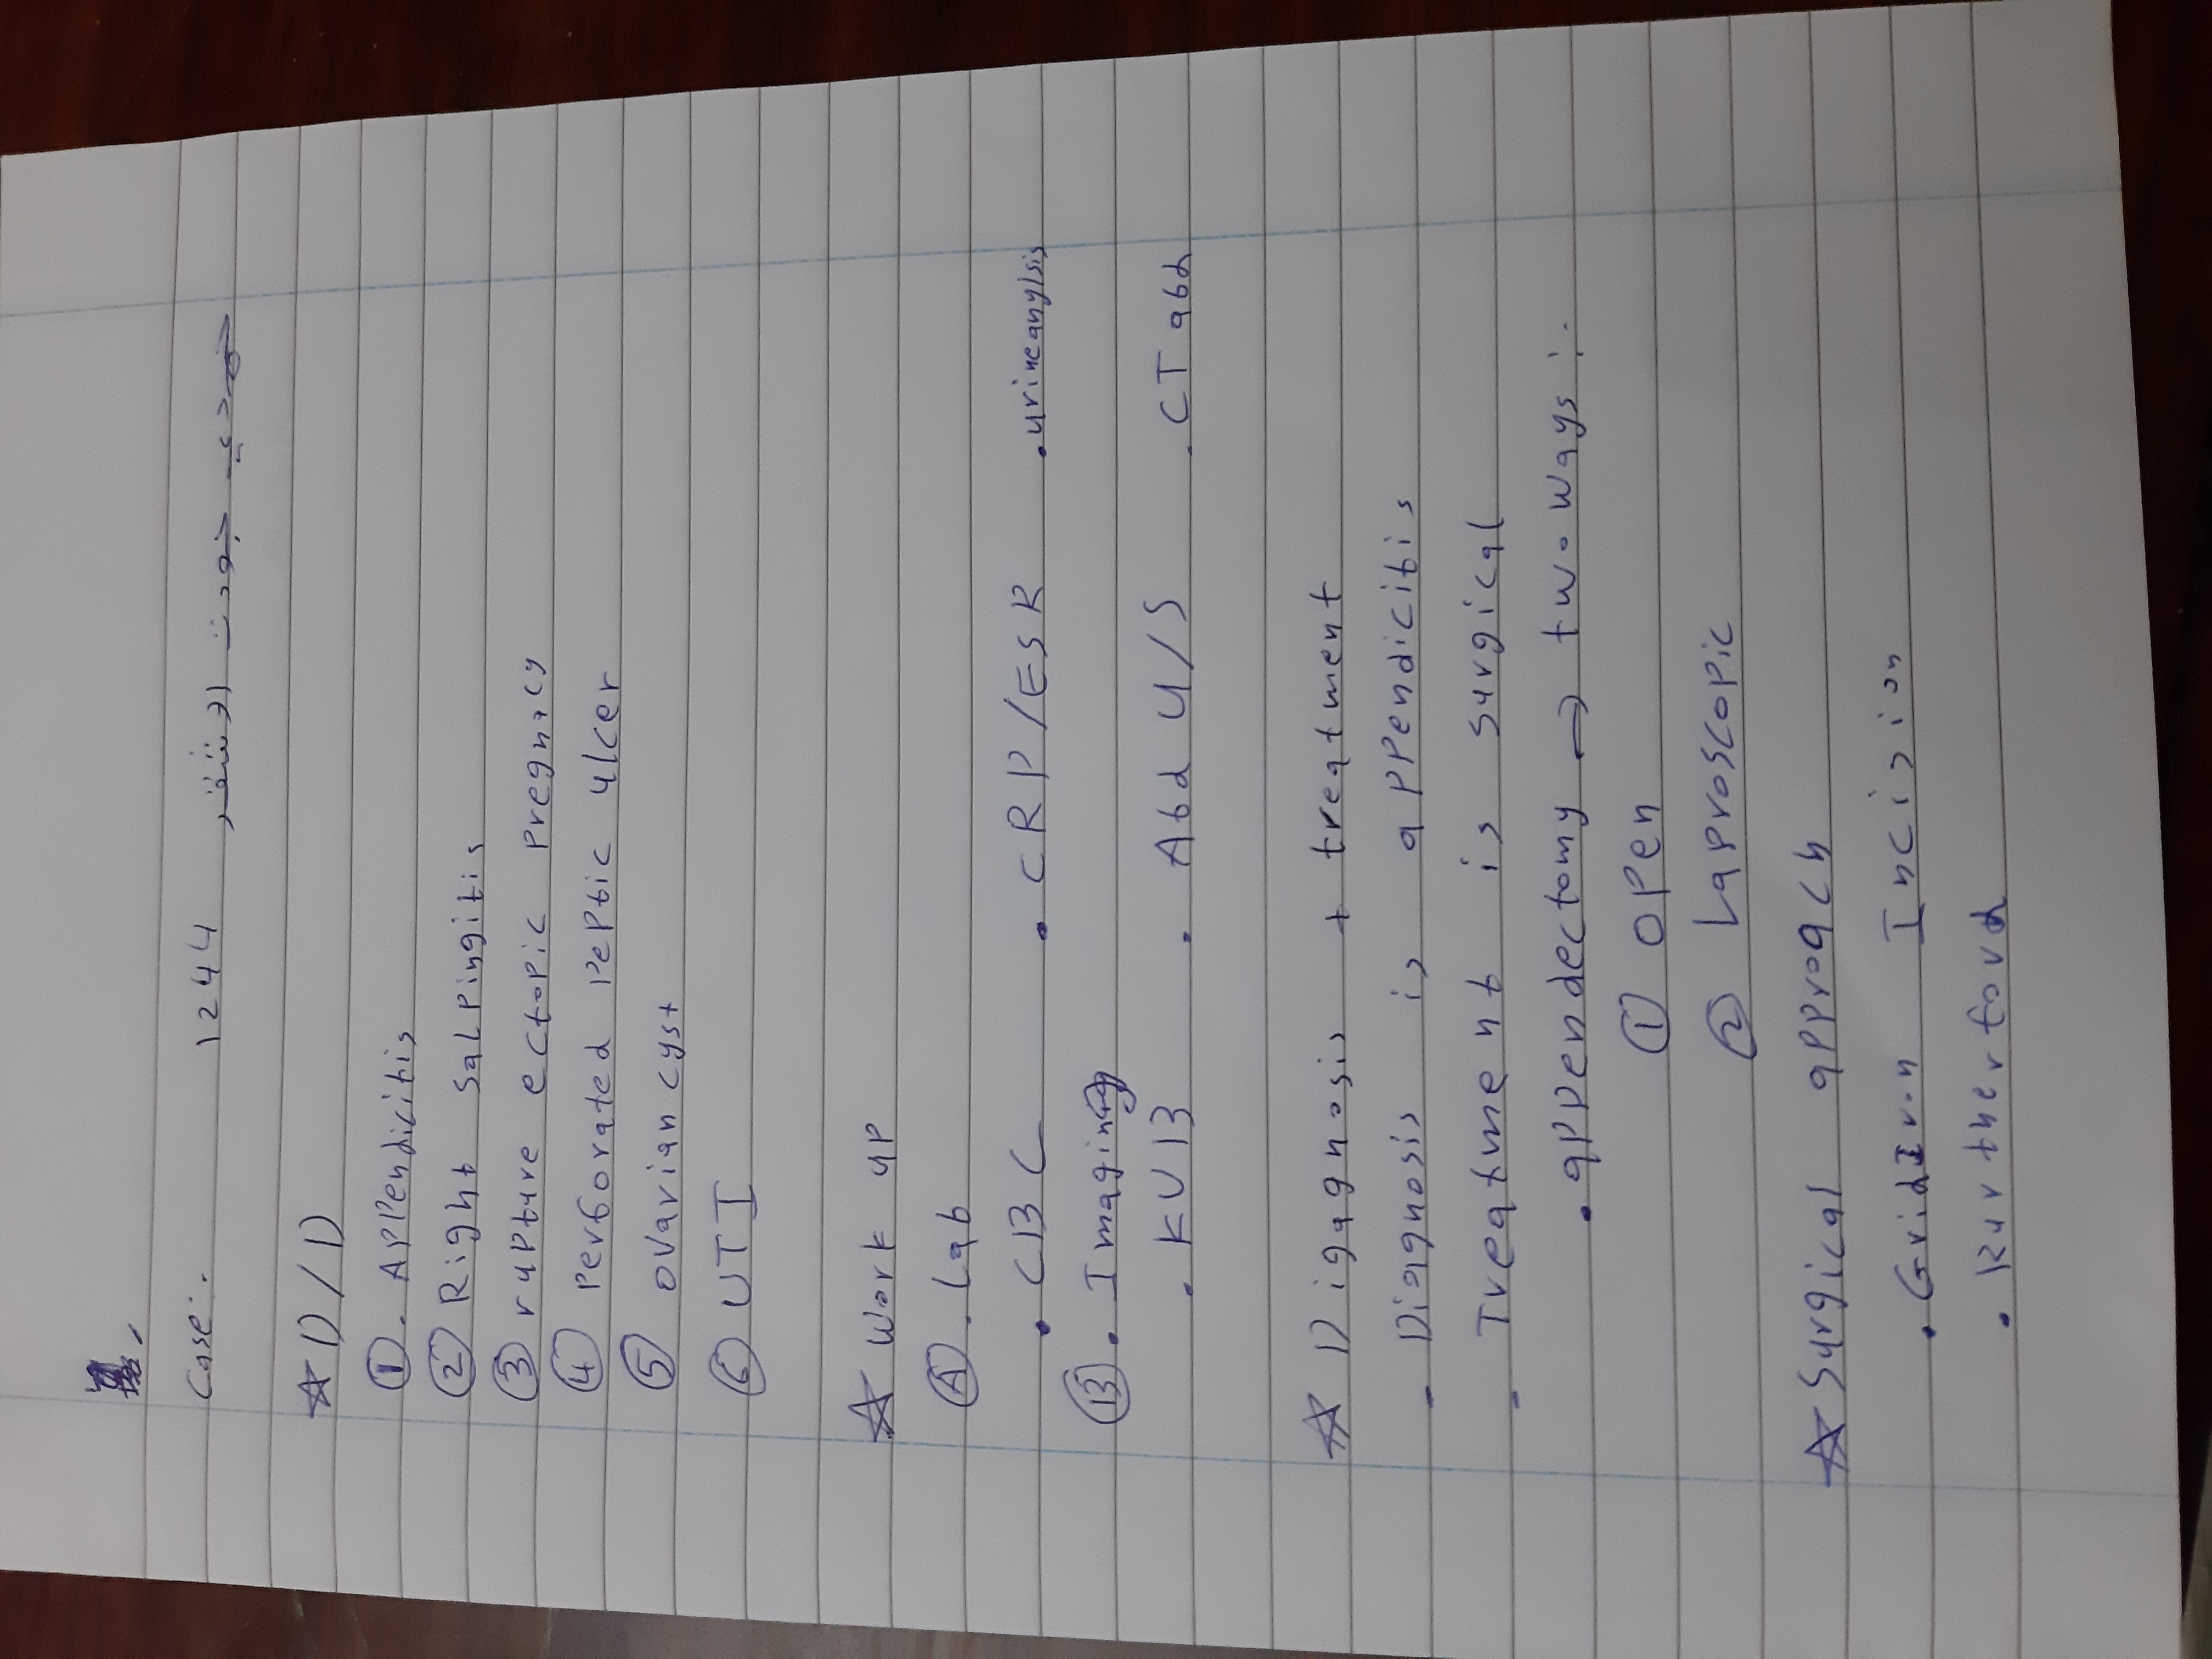 Case: 1244
☆ D/D
① . Appendicitis
② Right salpingitis
③ rupture ectopic pregnacy
④ Perforated Peptic ulcer
⑤ ovarian cyst
⑥ UTI
☆ Work up
Ⓐ . Lab
• CBC • CRP/ESR • urineanylsis
Ⓑ • Imaging
• KUB • Abd U/S • CT abd
☆ Digagnosis + treatment
- Diagnosis is appendicitis
- Treatment is surgical
• appendectomy → two ways :
① open
② Laproscopic
☆ Surgical approach
• GridIron Incision
• Rutherford